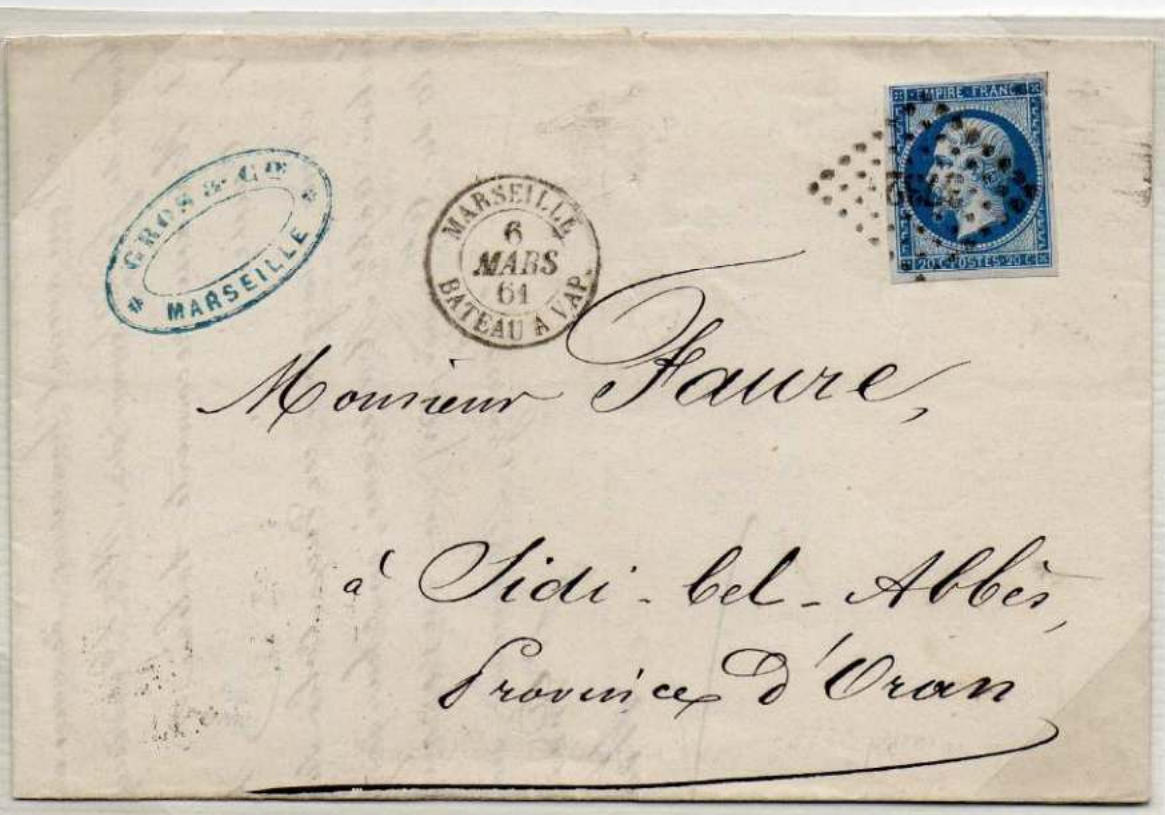 GROS & Cie
MARSEILLE
MARSEILLE
6
MARS
61
BATEAU A VAP.
EMPIRE FRANC
20 C POSTES 20 C
Monsieur Faure,
à Sidi-bel-Abbès,
Province d'Oran